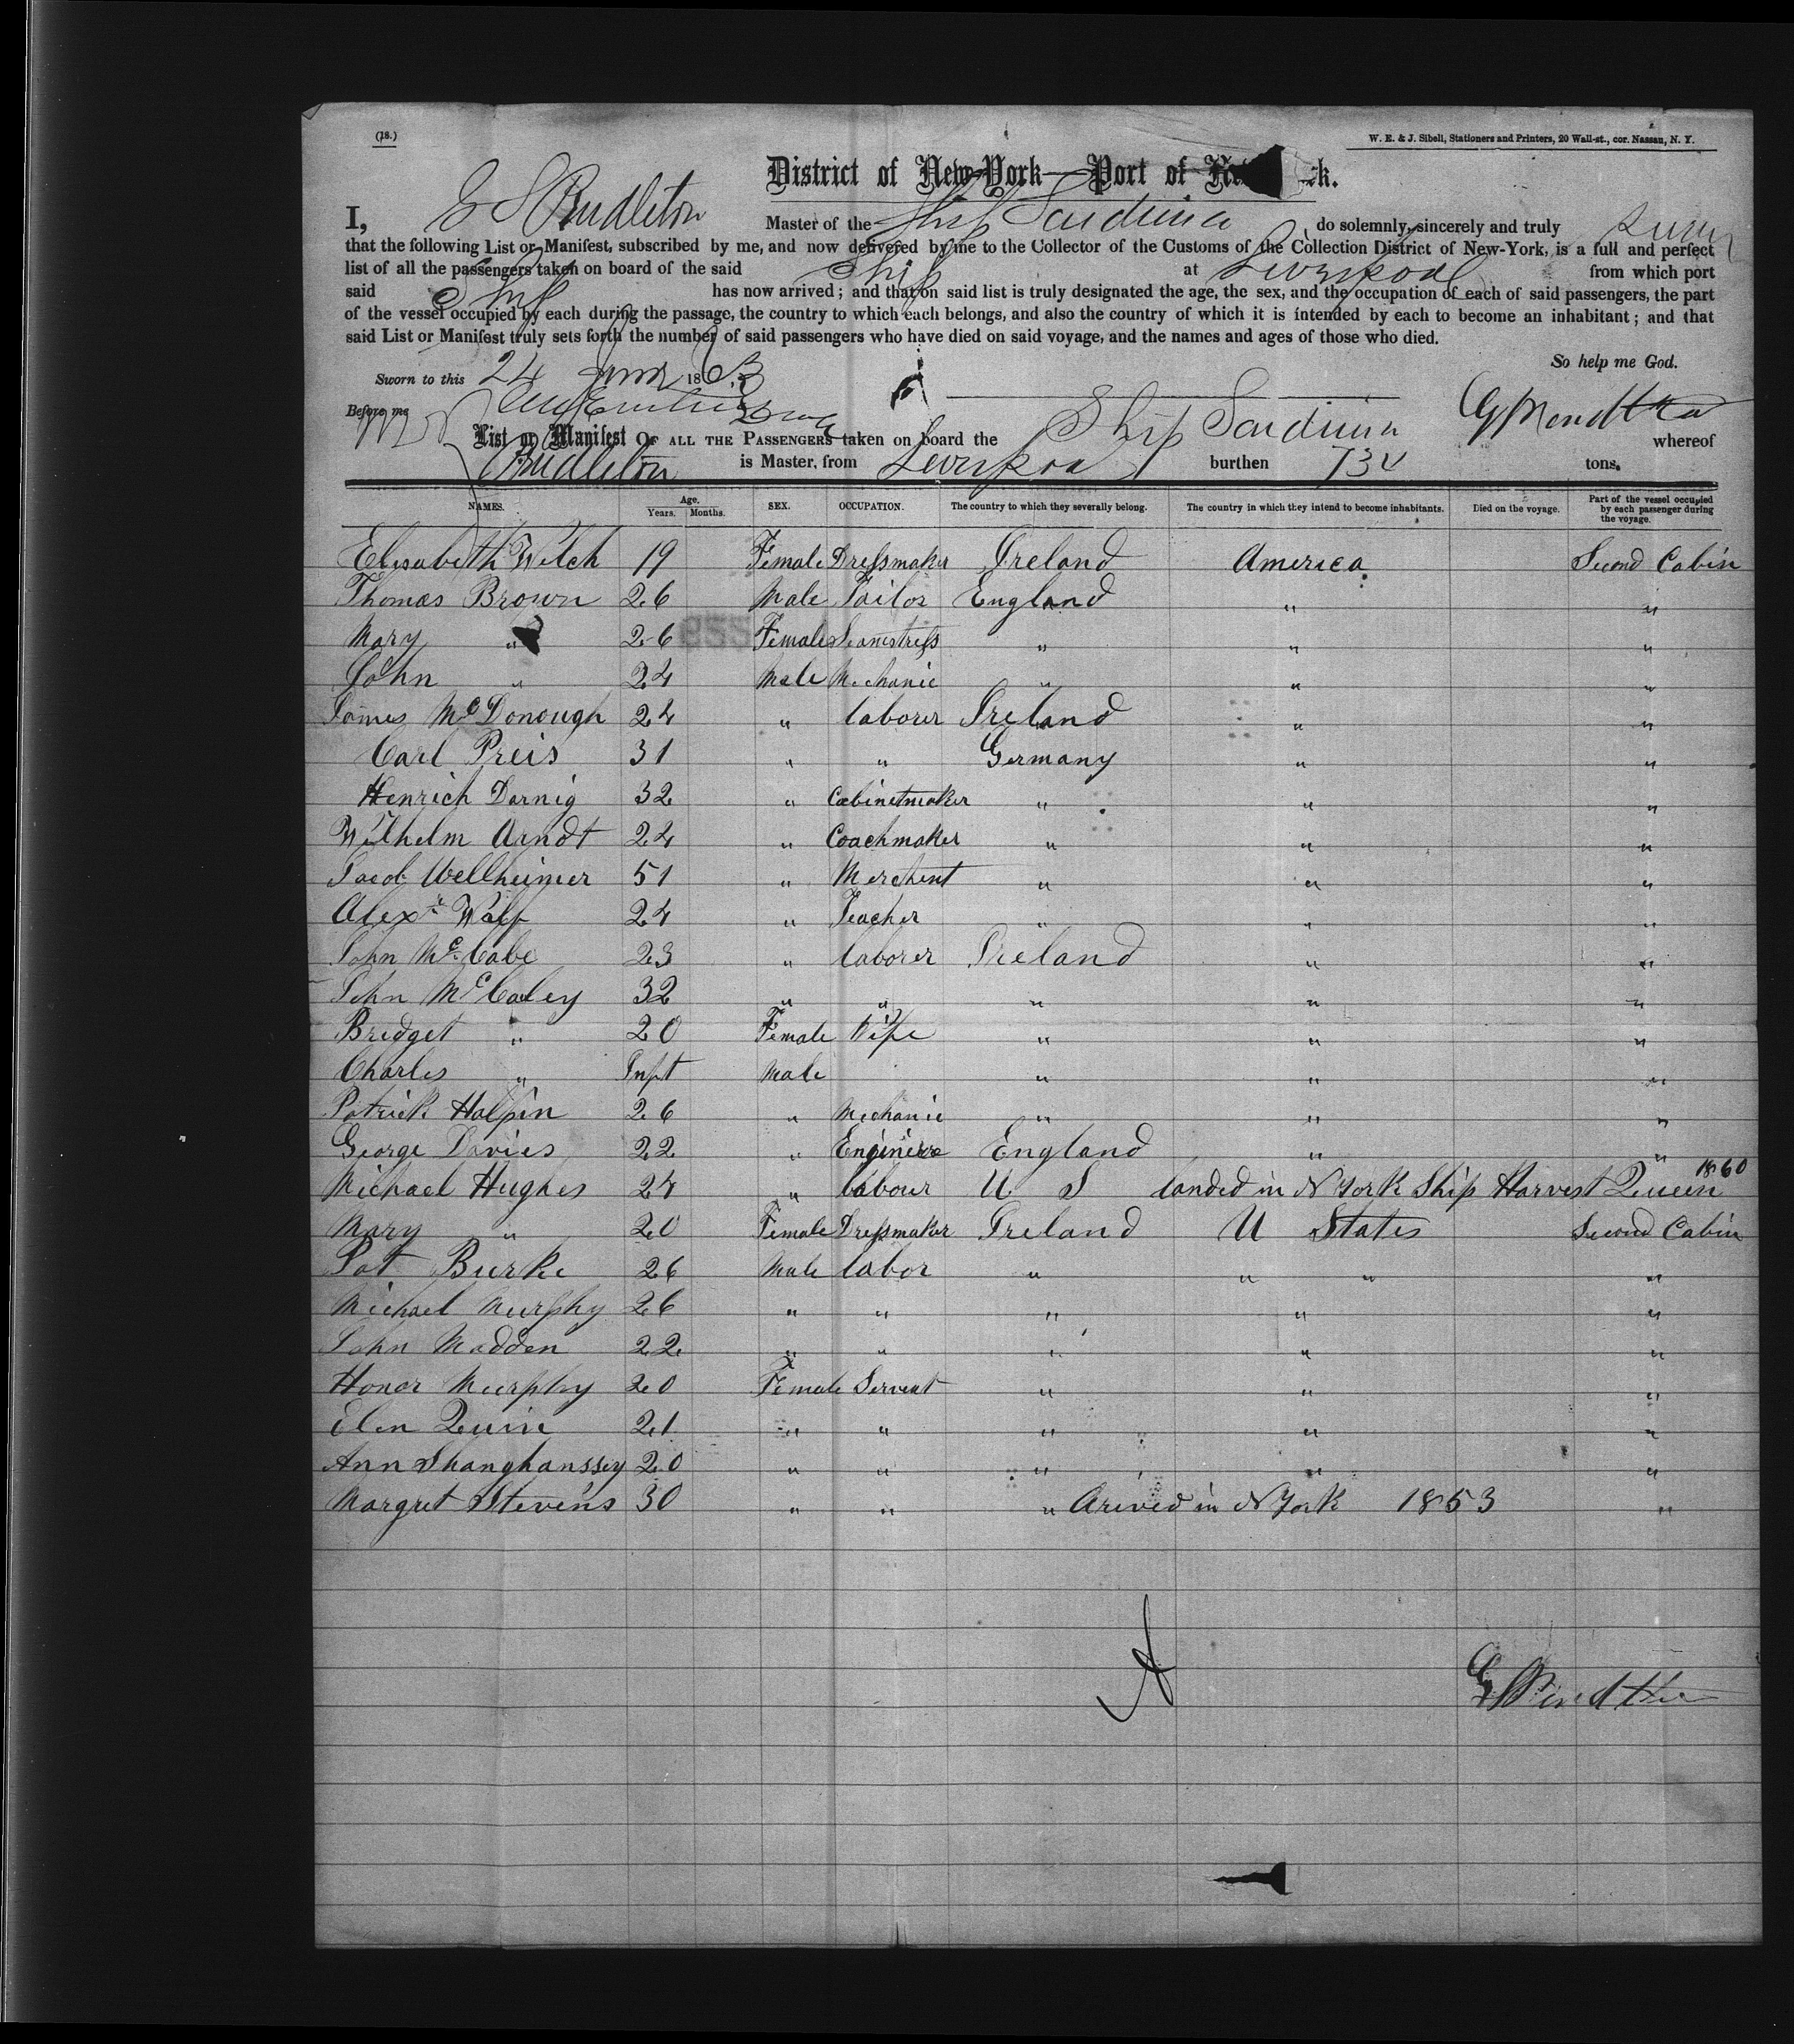 (18.)
W. E. & J. Sibell, Stationers and Printers, 20 Wall-st., cor. Nassau, N. Y.
District of New-York—Port of k.
I, Pendleton Master of the Ship Sardinia do solemnly, sincerely and truly swear
that the following List or Manifest, subscribed by me, and now delivered by me to the Collector of the Customs of the Collection District of New-York, is a full and perfect
list of all the passengers taken on board of the said Ship at Liverpool from which port
said Ship has now arrived; and that on said list is truly designated the age, the sex, and the occupation of each of said passengers, the part
of the vessel occupied by each during the passage, the country to which each belongs, and also the country of which it is intended by each to become an inhabitant; and that
said List or Manifest truly sets forth the number of said passengers who have died on said voyage, and the names and ages of those who died.
So help me God.
Sworn to this 24 June 1863
Before me
List or Manifest OF ALL THE PASSENGERS taken on board the Ship Sardinia whereof
Pendleton is Master, from Liverpool burthen tons.
NAMES. Age. Years. Months. SEX. OCCUPATION. The country to which they severally belong. The country in which they intend to become inhabitants. Died on the voyage. Part of the vessel occupied by each passenger during the voyage.
Elesabeth Welch 19 Female Dressmaker Ireland America Second Cabin
Thomas Brown 26 Male Tailor England " "
Mary " 26 Female Seamstress " " "
John " 24 Male Mechanic " " "
James McDonough 24 " laborer Ireland " "
Carl Preis 31 " " Germany " "
Henrich Dornig 32 " Cabinetmaker " " "
Wilhelm Arndt 24 " Coachmaker " " "
Jacob Wellheimer 51 " Merchent " " "
Alexr Walf 24 " Teacher " " "
John McCabe 23 " laborer Ireland " "
John McCaley 32 " " " " "
Bridget " 20 Female Wife " " "
Charles " Inft Male " " "
Patrick Halpin 26 " Mechanic " " "
George Davies 22 " Enginere England " "
Michael Hughes 24 " labour U S landed in N York Ship Harvest Queen 1860
Mary " 20 Female Dressmaker Ireland U States Second Cabin
Pat Burke 26 Male labor " " " "
Michael Murphy 26 " " " " "
John Madden 22 " " " " "
Honor Murphy 20 Female Servent " " "
Elen Quin 21 " " " " "
Ann Shanghanssey 20 " " " " "
Margret Stevens 30 " " " Arived in N York 1853 "